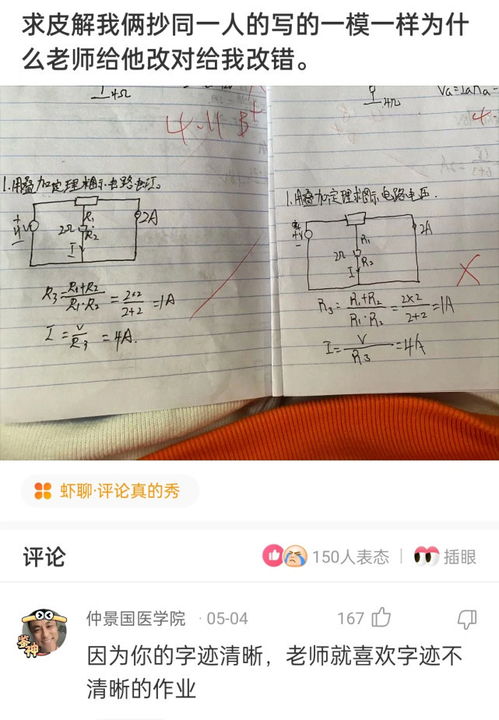 求皮解我俩抄同一人的写的一模一样为什
么老师给他改对给我改错。
4Ω
4Ω
4.11 B+
1.用叠加定理求图示电路电压。
1.用叠加定理求图示电路电压.
+
4V
-
R₁
2Ω
R₂
I
2A
4V
-
R₁
2Ω
R₂
I
2A
R₃=R₁+R₂/R₁·R₂=2×2/2+2=1A
I=V/R₃=4A.
R₃=R₁+R₂/R₁·R₂=2×2/2+2=1A
I=V/R₃=4A
虾聊·评论真的秀
评论
150人表态
插眼
仲景国医学院 ·05-04
167
因为你的字迹清晰，老师就喜欢字迹不
清晰的作业